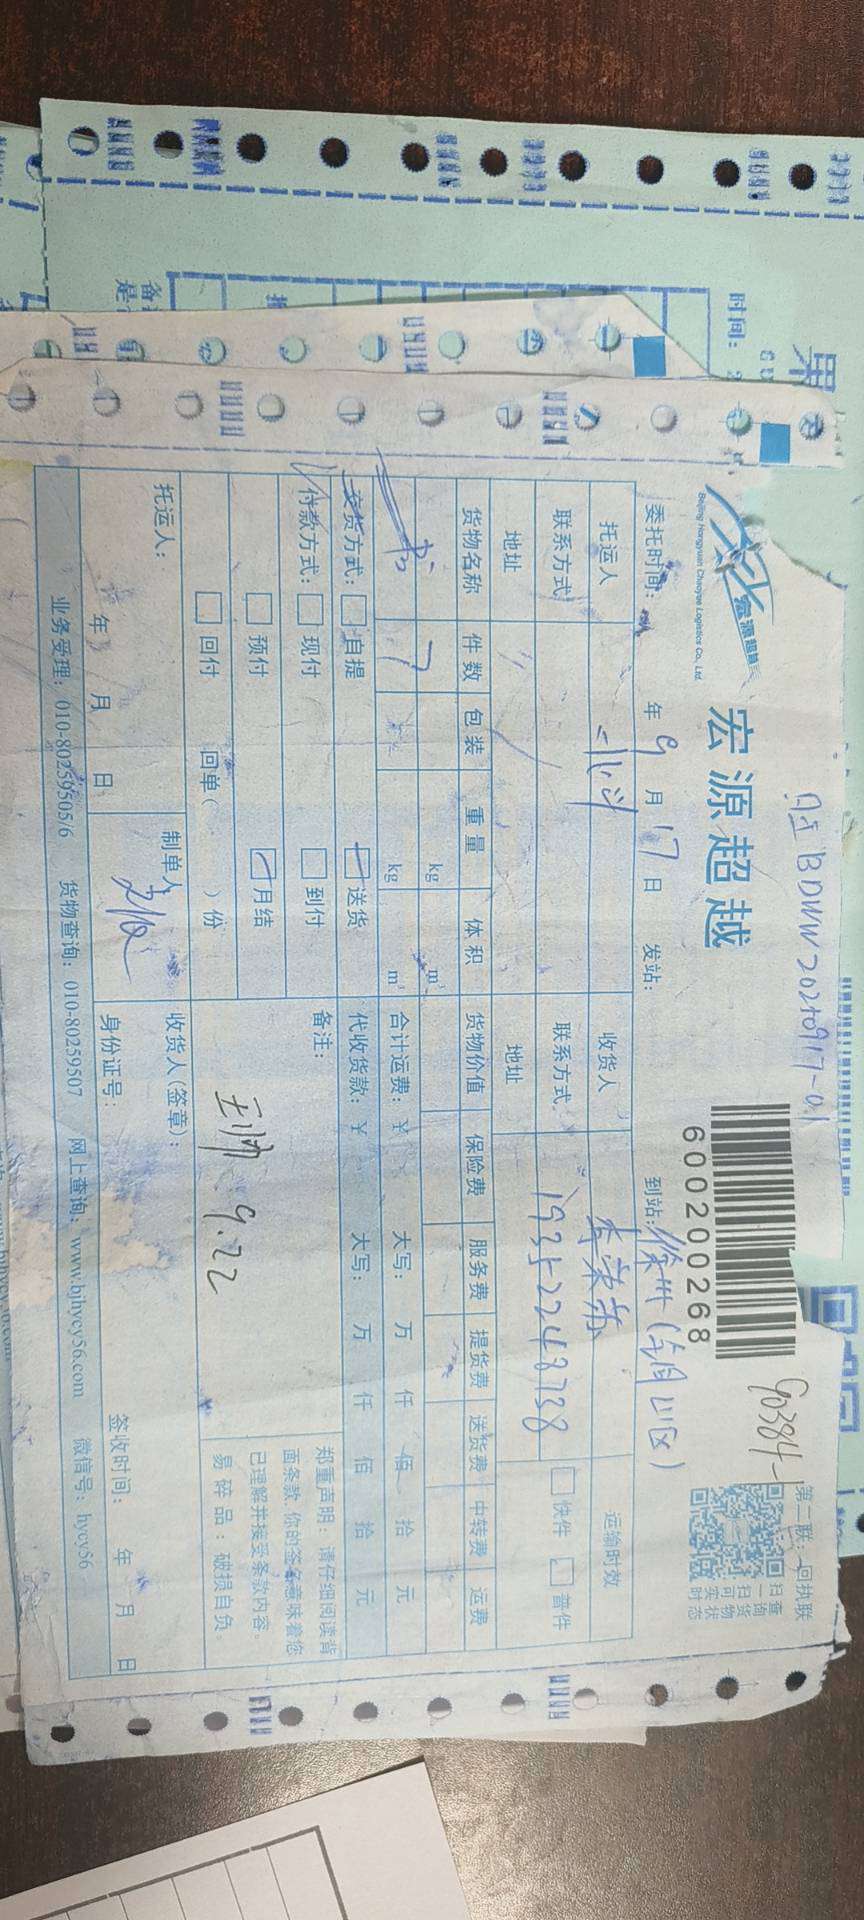 宏源超越
Beijing Hongyuan Chaoyue Logistics Co., Ltd.
宏源超越
BDWW20210917-01
600200268
90384-1
第二联：回执联
扫查
一询
扫货
可物
实状
时态
委托时间： 年 9 月 17 日 发站： 到站：徐州（铜山区）
托运人 北斗 收货人 李荣苏 运输时效
联系方式 联系方式 19352248738 快件 普件
地址 地址
货物名称 件数 包装 重量 体积 货物价值 保险费 服务费 提货费 送货费 中转费 运费
书 7 kg m³
kg m³ 合计运费：￥ 大写： 万 仟 佰 拾 元
交货方式： 自提 送货 代收货款：￥ 大写： 万 仟 佰 拾 元
付款方式： 现付 到付 备注：
预付 月结
回付 回单（ ）份
郑重声明：请仔细阅读背
面条款，你的签名意味着您
已理解并接受条款内容。
易碎品：破损自负。
王帅 9.22
托运人： 制单人 收货人(签章)：
年 月 日 身份证号： 签收时间： 年 月 日
业务受理：010-80259505/6 货物查询：010-80259507 网上查询：www.bjhycy56.com 微信号：hycy56
时间：